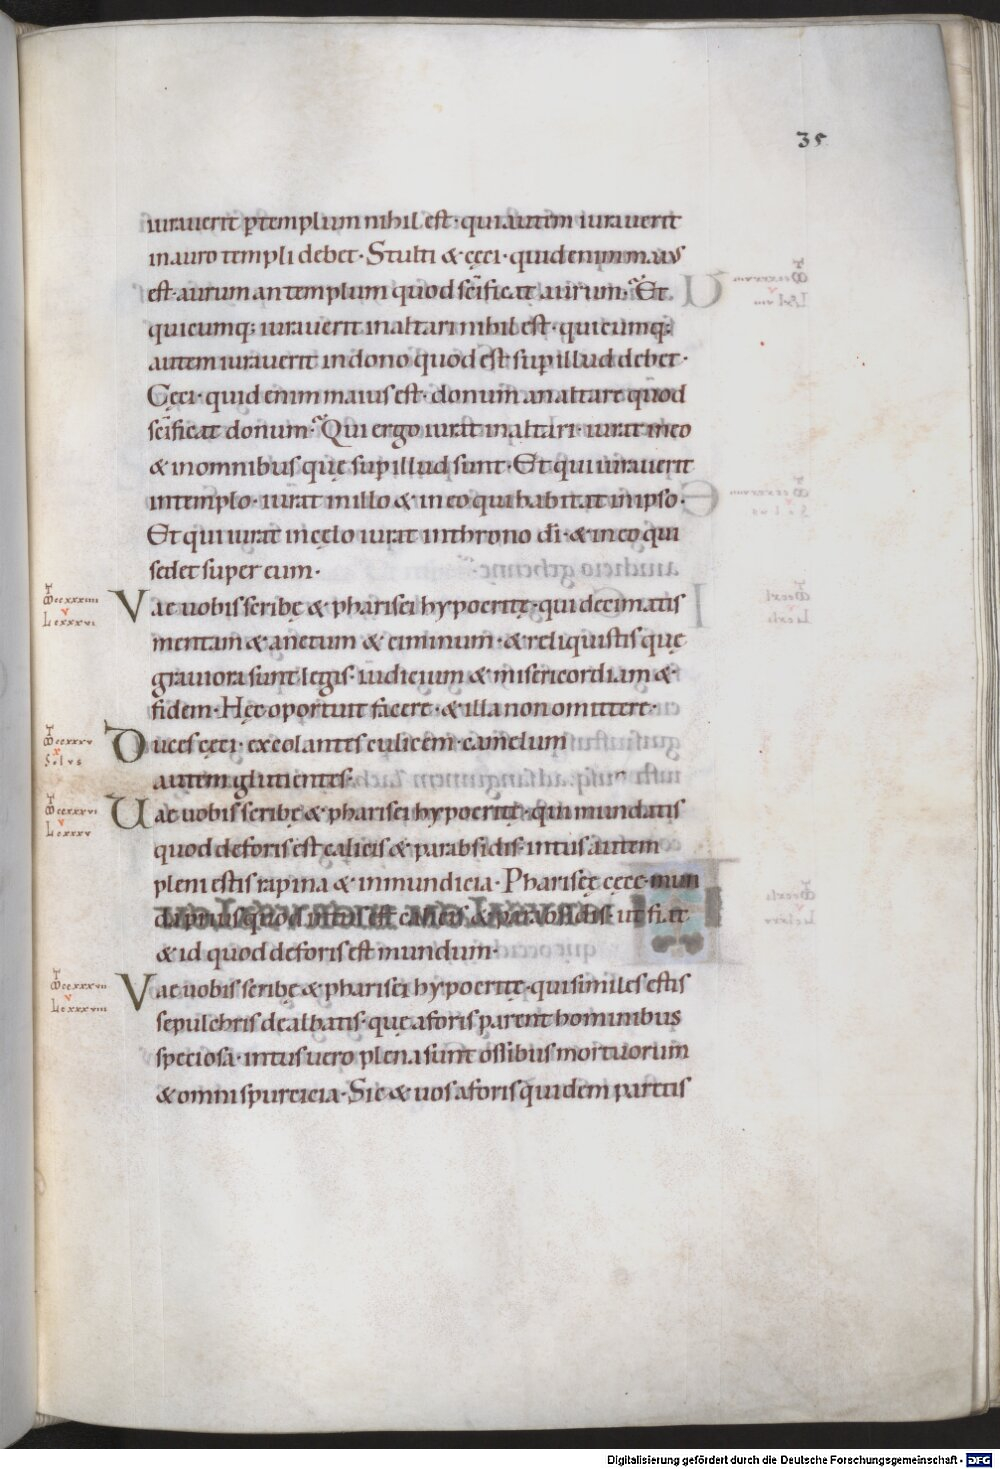 35
iurauerit ꝑ templum nihil est· qui autem iurauerit
in auro templi debet· Stulti & cęci· quid enim maius
est· aurum an templum quod scīficat aurum·̃ Et
quicumq; iurauerit in altari nihil est· quicumq;
autem iurauerit in dono quod est suꝑ illud debet·
Cęci· quid enim maius est· donum an altare quod
scīficat donum·̃ Qui ergo iurat in altari· iurat in eo
& in omnibus quę suꝑ illud sunt· Et qui iurauerit
in templo· iurat in illo & in eo qui habitat in ipso·
Et qui iurat in cęlo iurat in throno dī· & in eo qui
sedet super eum·
Vae uobis scribę & pharisei hypocritę· qui decimatis
mentam & anetum & ciminum· & reliquistis quę
grauiora sunt legis· iudicium & misericordiam &
fidem· Hęc oportuit facere· & illa non omittere·
Duces cęci· excolantes culicem· camelum
autem glutientes·
Uae uobis scribę & pharisei hypocritę· qui mundatis
quod deforis est calicis & parabsidis· intus autem
pleni estis rapina & inmundicia· Pharisęe cęce· mun
da prius quod intus est calicis & parabsidis· ut fiat
& id quod deforis est mundum·
Vae uobis scribę & pharisei hypocritę· qui similes estis
sepulchris dealbatis· quę aforis parent hominibus
speciosa· intus uero plena sunt ossibus mortuorum
& omni spurcicia· Sic & uos aforis quidem paretis
Digitalisierung gefördert durch die Deutsche Forschungsgemeinschaft - DFG